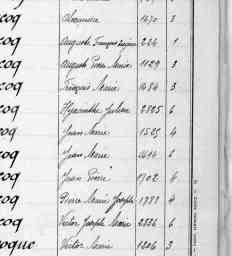 coq Alexandre 1470 3
coq Auguste François Eugène 266 1
coq Auguste Pierre Marie 1129 3
coq François Marie 1484 3
coq Hyacinthe Julien 2305 6
coq Jean Marie 1505 4
coq Jean Marie 6
coq Jean Pierre 1702 4
coq Pierre Marie Joseph 1777 4
coq Victor Joseph Marie 2326 6
oque Victor Marie 1206 3